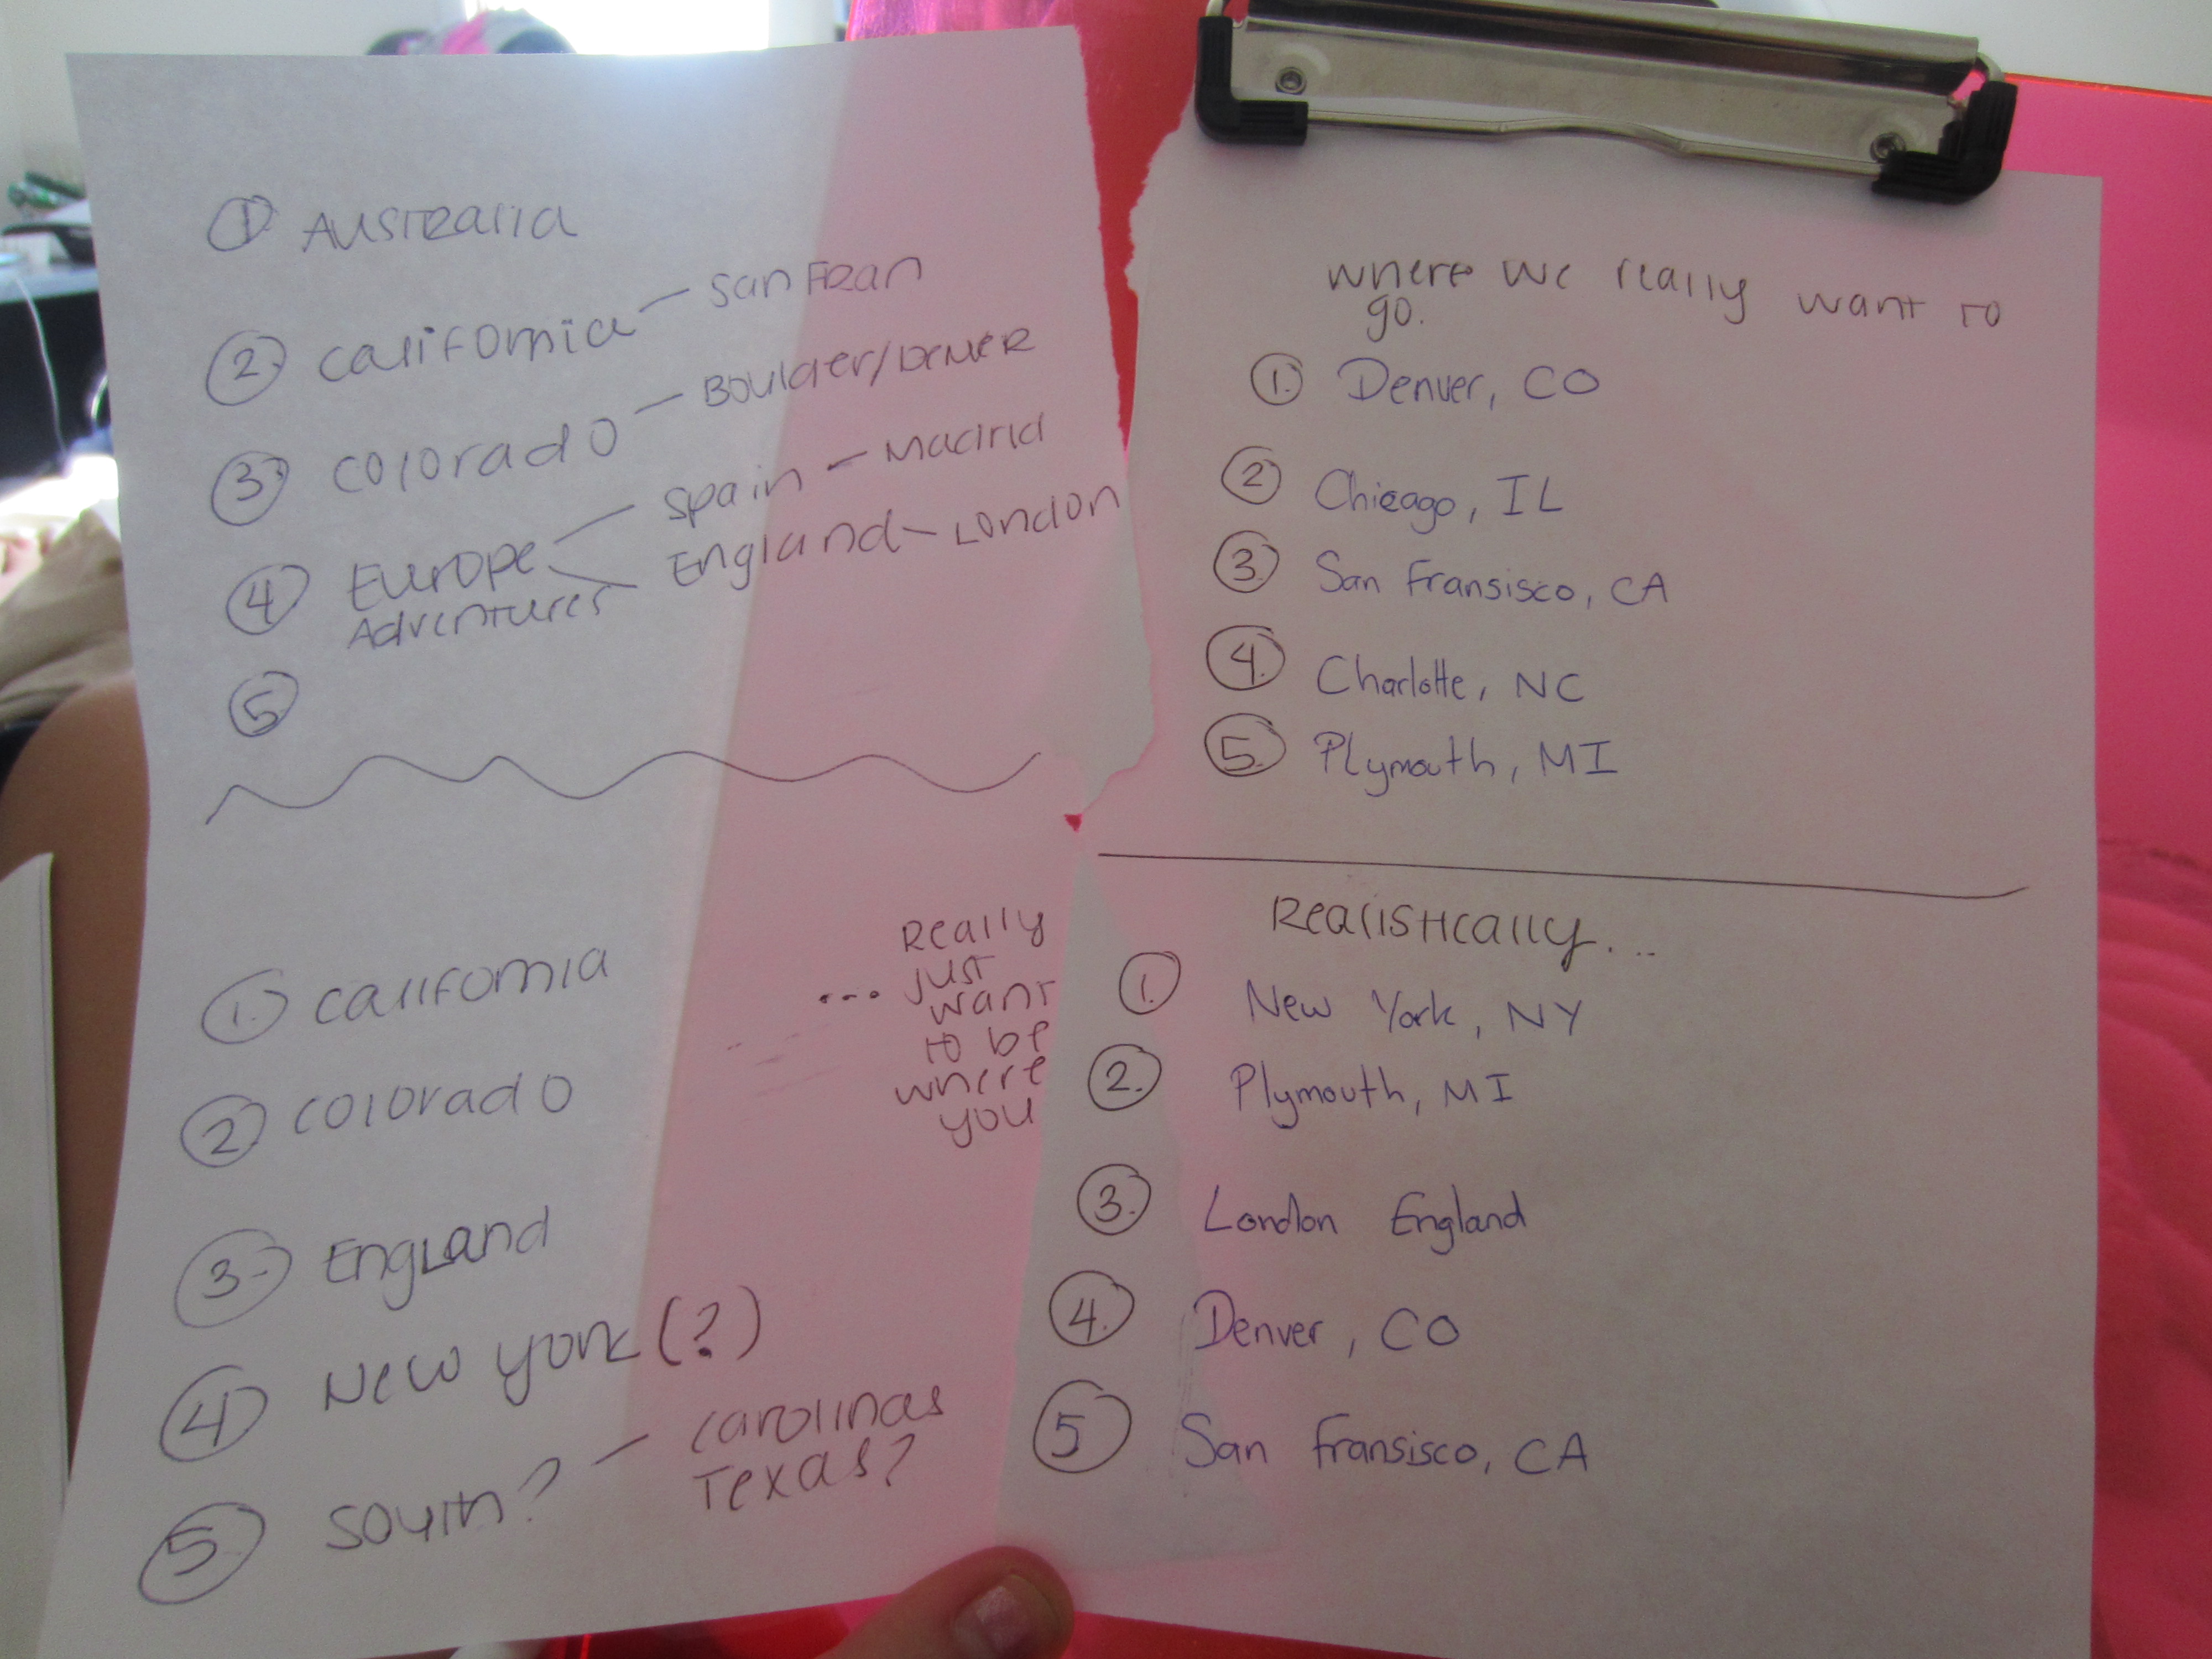 ① Australia
② California — San Fran
③ Colorado — Boulder/Denver
④ Europe Adventures
Spain — Madrid
England — London
⑤
1. California
2 Colorado
3- England
4 New York (?)
5 South? — Carolinas
Texas?
... Really
just
want
to be
where
you
where we really want to
go.
1. Denver, CO
2 Chicago, IL
3. San Fransisco, CA
4. Charlotte, NC
5. Plymouth, MI
Realistically...
1. New York, NY
2. Plymouth, MI
3. London England
4. Denver, CO
5 San Fransisco, CA